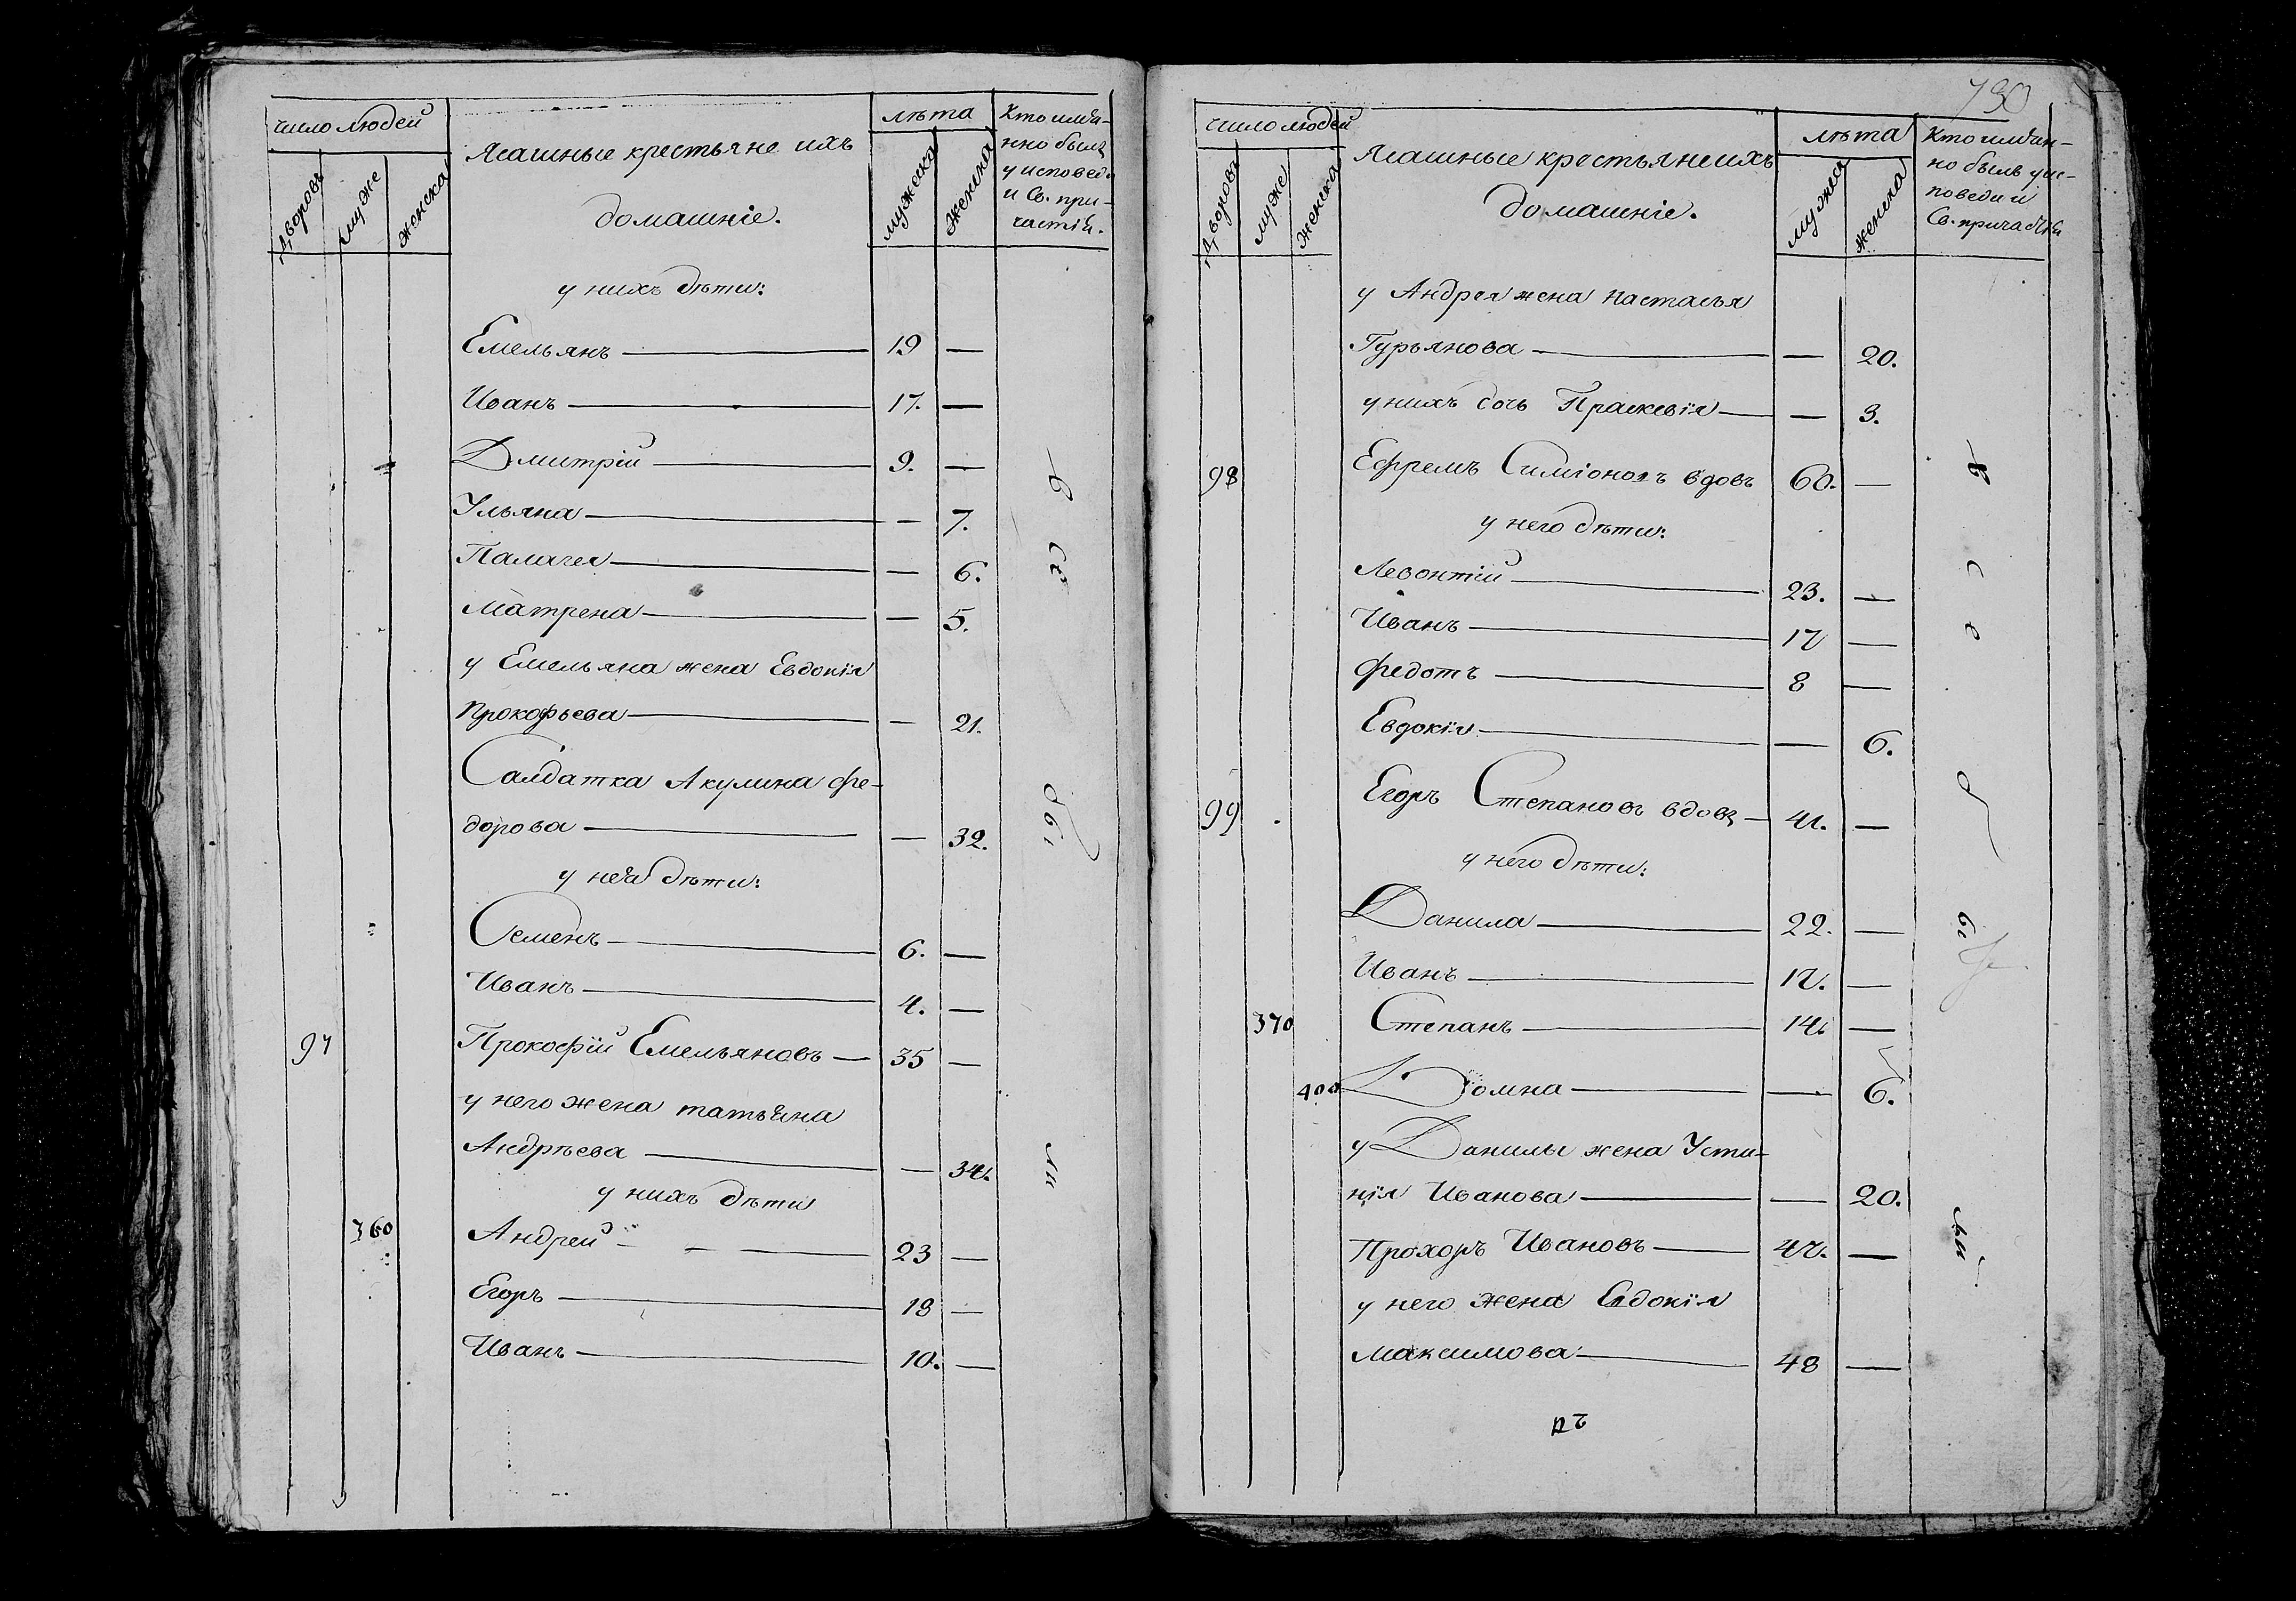 число людей
дворовъ
муже
женска
Ясашные крестьяне ихъ
домашніе.
лѣта
мужеска
женска
Кто имѧ-
нно былъ
у исповеди
и Св. при-
частія.
у нихъ дѣти:
Емельянъ — 19 —
Иванъ — 17. —
Дмитрій — 9. —
Ульяна — — 7.
Палагея — — 6.
Матрена — — 5.
у Емельяна жена Евдокія
Прокофьева — — 21.
Салдатка Акулина Фе-
дорова — — 32.
у нея дѣти:
Семенъ — 6. —
Иванъ — 4. —
97 Прокофій Емельяновъ — 35 —
у него жена татьяна
Андрѣева — — 34.
у нихъ дѣти
360 Андрей — 23 —
Егоръ — 18 —
Иванъ — 10. —
В се
бы
ли
730
число людей
дворовъ
муже
женска
Ясашные крестьяне ихъ
домашніе.
лѣта
мужеск
женска
Кто имян-
но былъ у ис-
поведи и
Св. причастія
у Андрея жена Настасья
Гурьянова — — 20.
у нихъ дочь Праскевія — — 3.
98 Ефремъ Симіоновъ вдовъ 60. —
у него дѣти:
Левонтій — 23. —
Иванъ — 17 —
Федотъ — 8 —
Евдокія — — 6.
99 Егоръ Степановъ вдовъ — 41. —
у него дѣти:
Данила — 22. —
Иванъ — 17. —
370 Степанъ — 14. —
400 Домна — — 6.
у Данилы жена Усти-
нія Иванова — — 20.
Прохоръ Ивановъ — 47. —
у него жена Евдокія
Максимова — 48 —
В
с
е
бы
ли